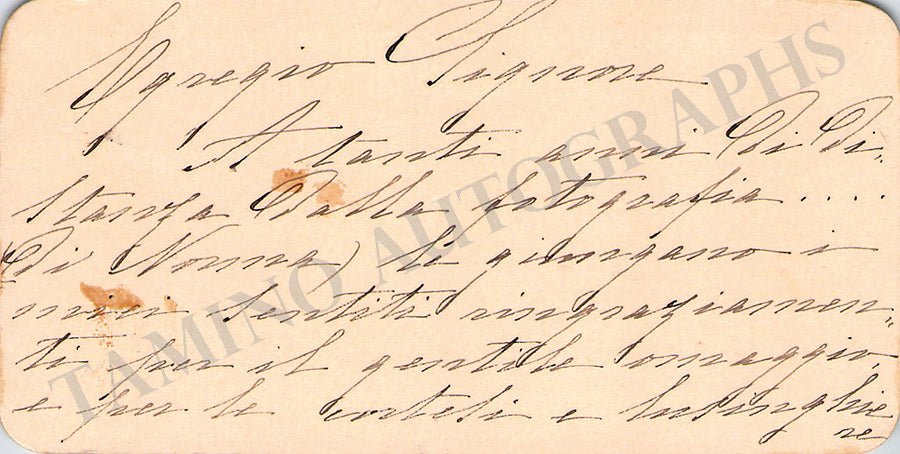 Egregio Signore
A tanti anni di di„
stanza dalla fotografia ....
(di Norma) le giungano i
miei sentiti ringraziamen„
ti per il gentile omaggio,
e per le cortesi e lusinghie
re
TAMINO AUTOGRAPHS